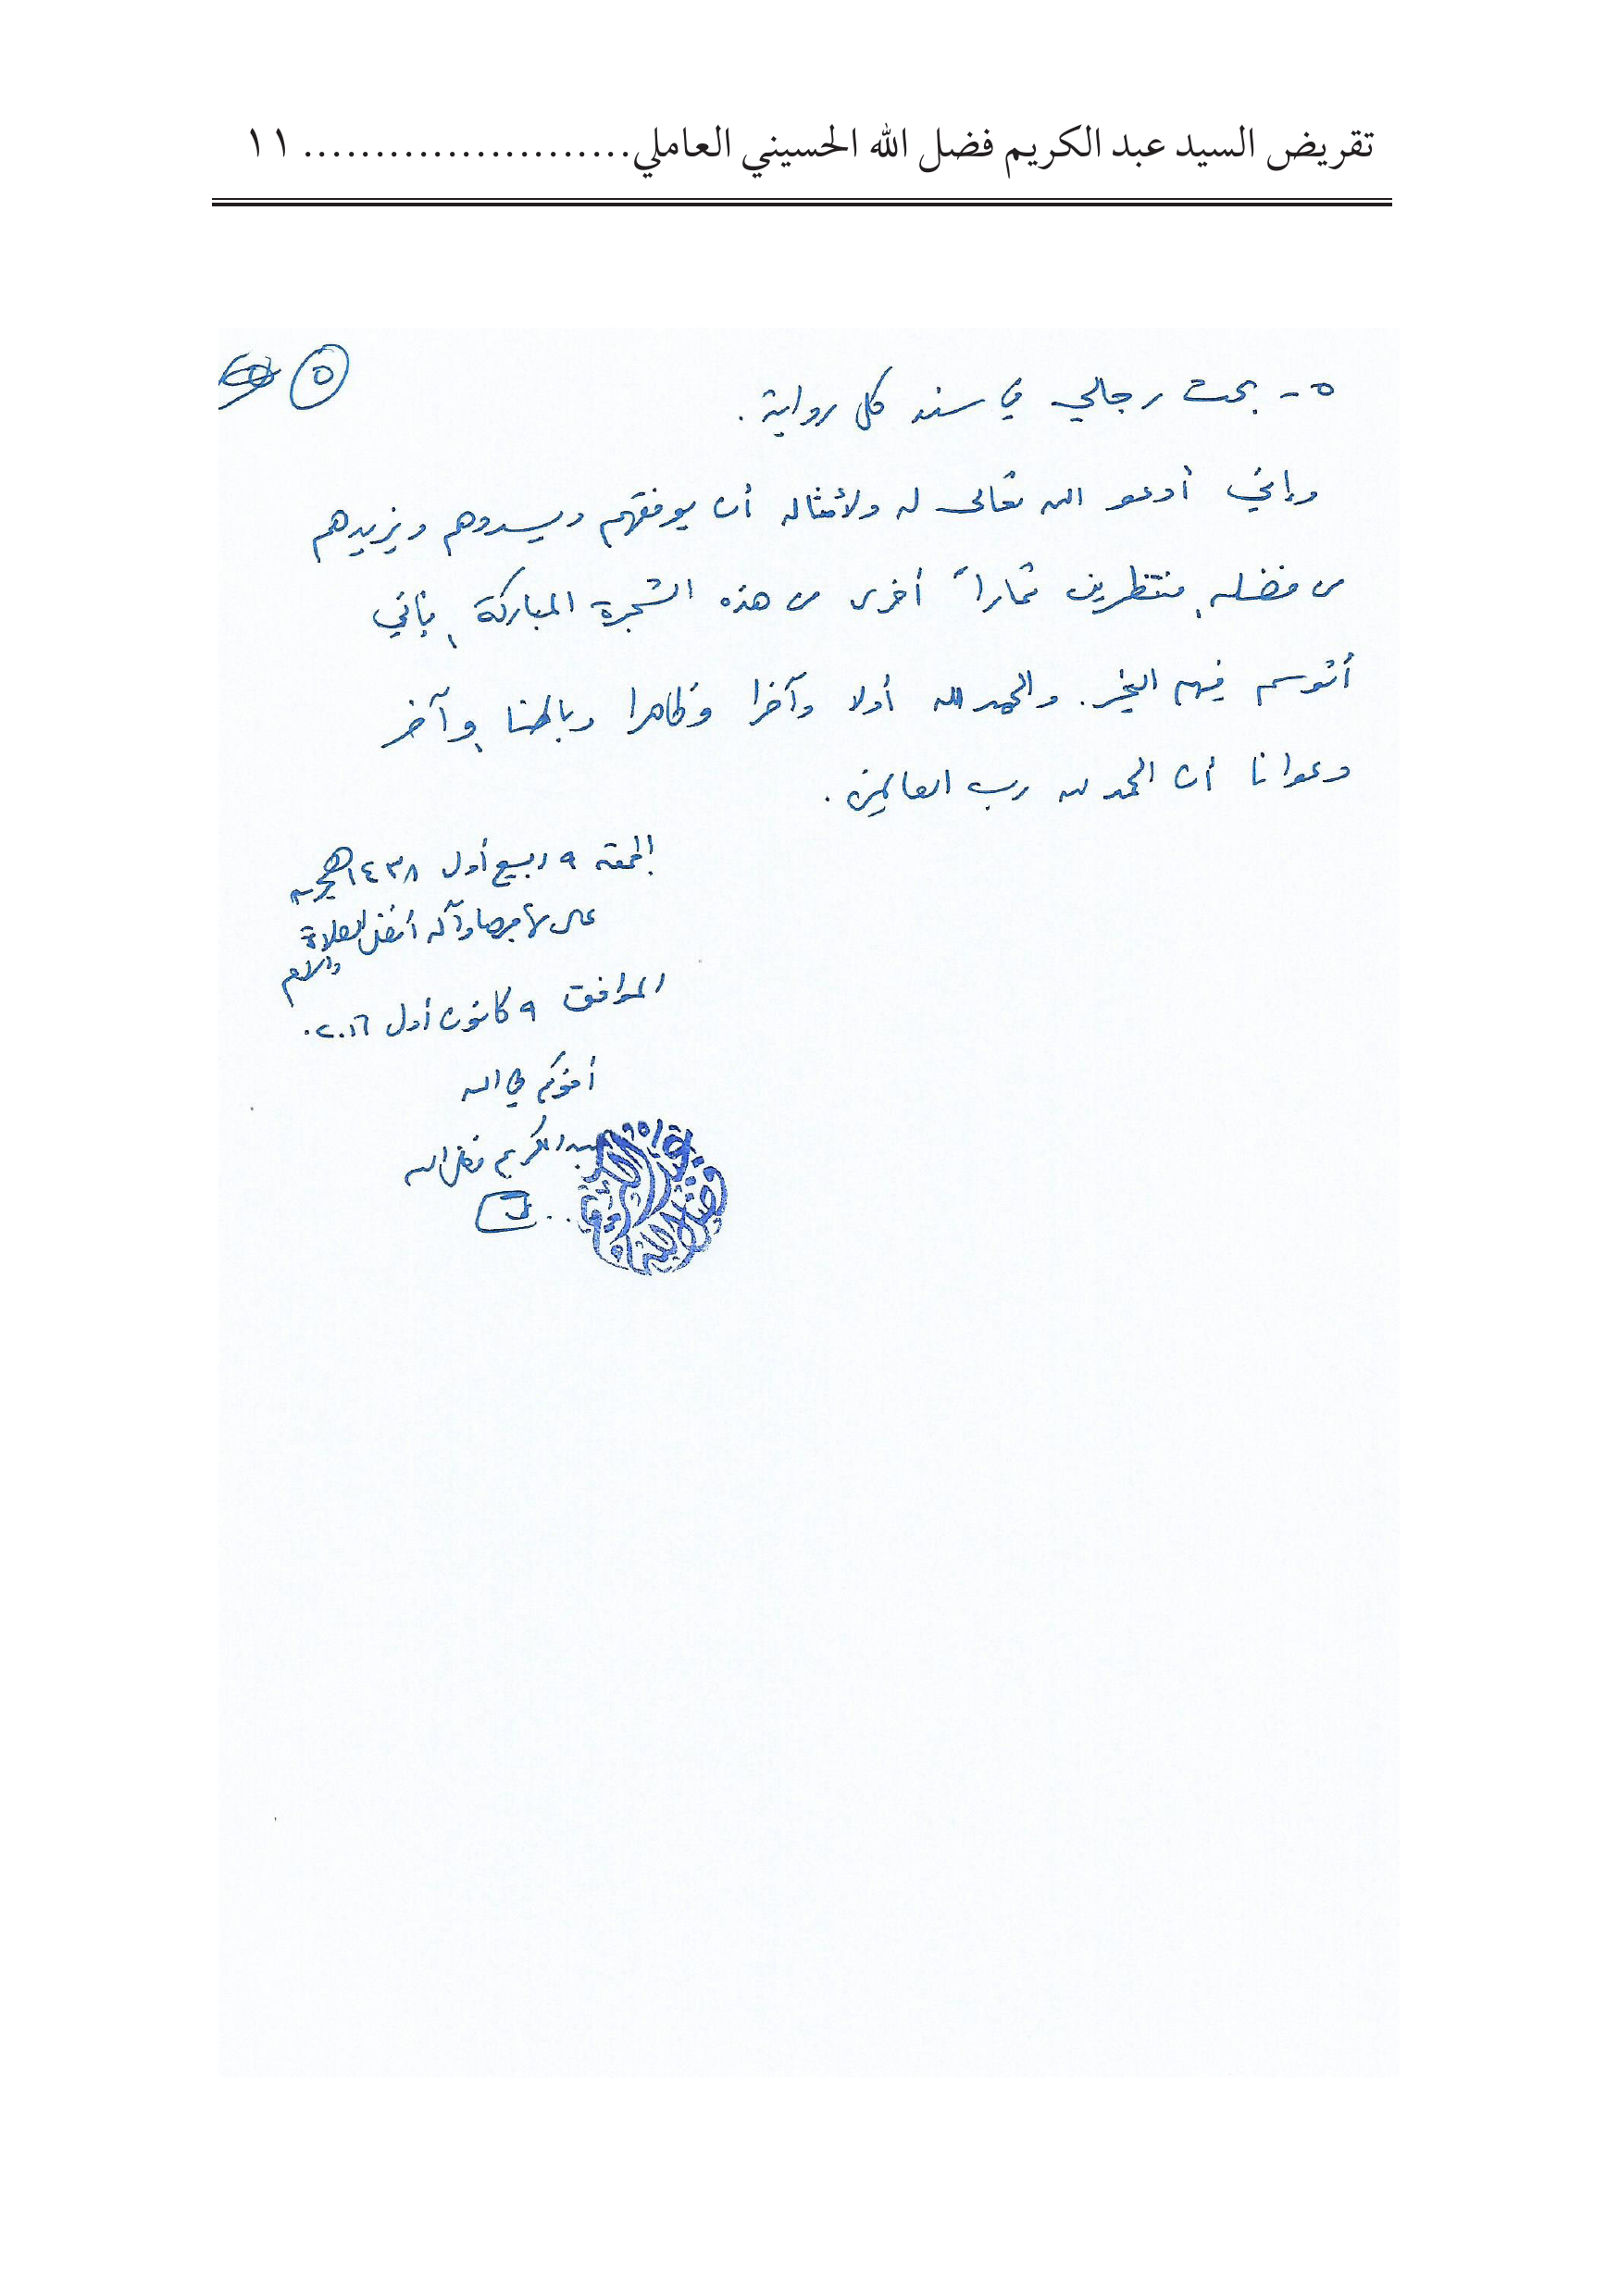 تقريض السيد عبد الكريم فضل الله الحسيني العاملي....................... ١١
٥
٥- بحث رجالي في سند كل رواية.
وإني أدعو الله تعالى له ولأمثاله أن يوفقهم ويسددهم ويزيدهم
من فضله، منتظرين ثماراً أخرى من هذه الشجرة المباركة، فإني
أتوسم فيهم الخير. والحمد لله أولا وآخرا وظاهرا وباطنا، وآخر
دعوانا أن الحمد لله رب العالمين.
الجمعة ٩ ربيع أول ١٤٣٨ هجرية
على مهاجرها وآله أفضل الصلاة
والسلام
الموافق ٩ كانون أول ٢٠١٦.
أخوكم في الله
عبد الكريم فضل الله